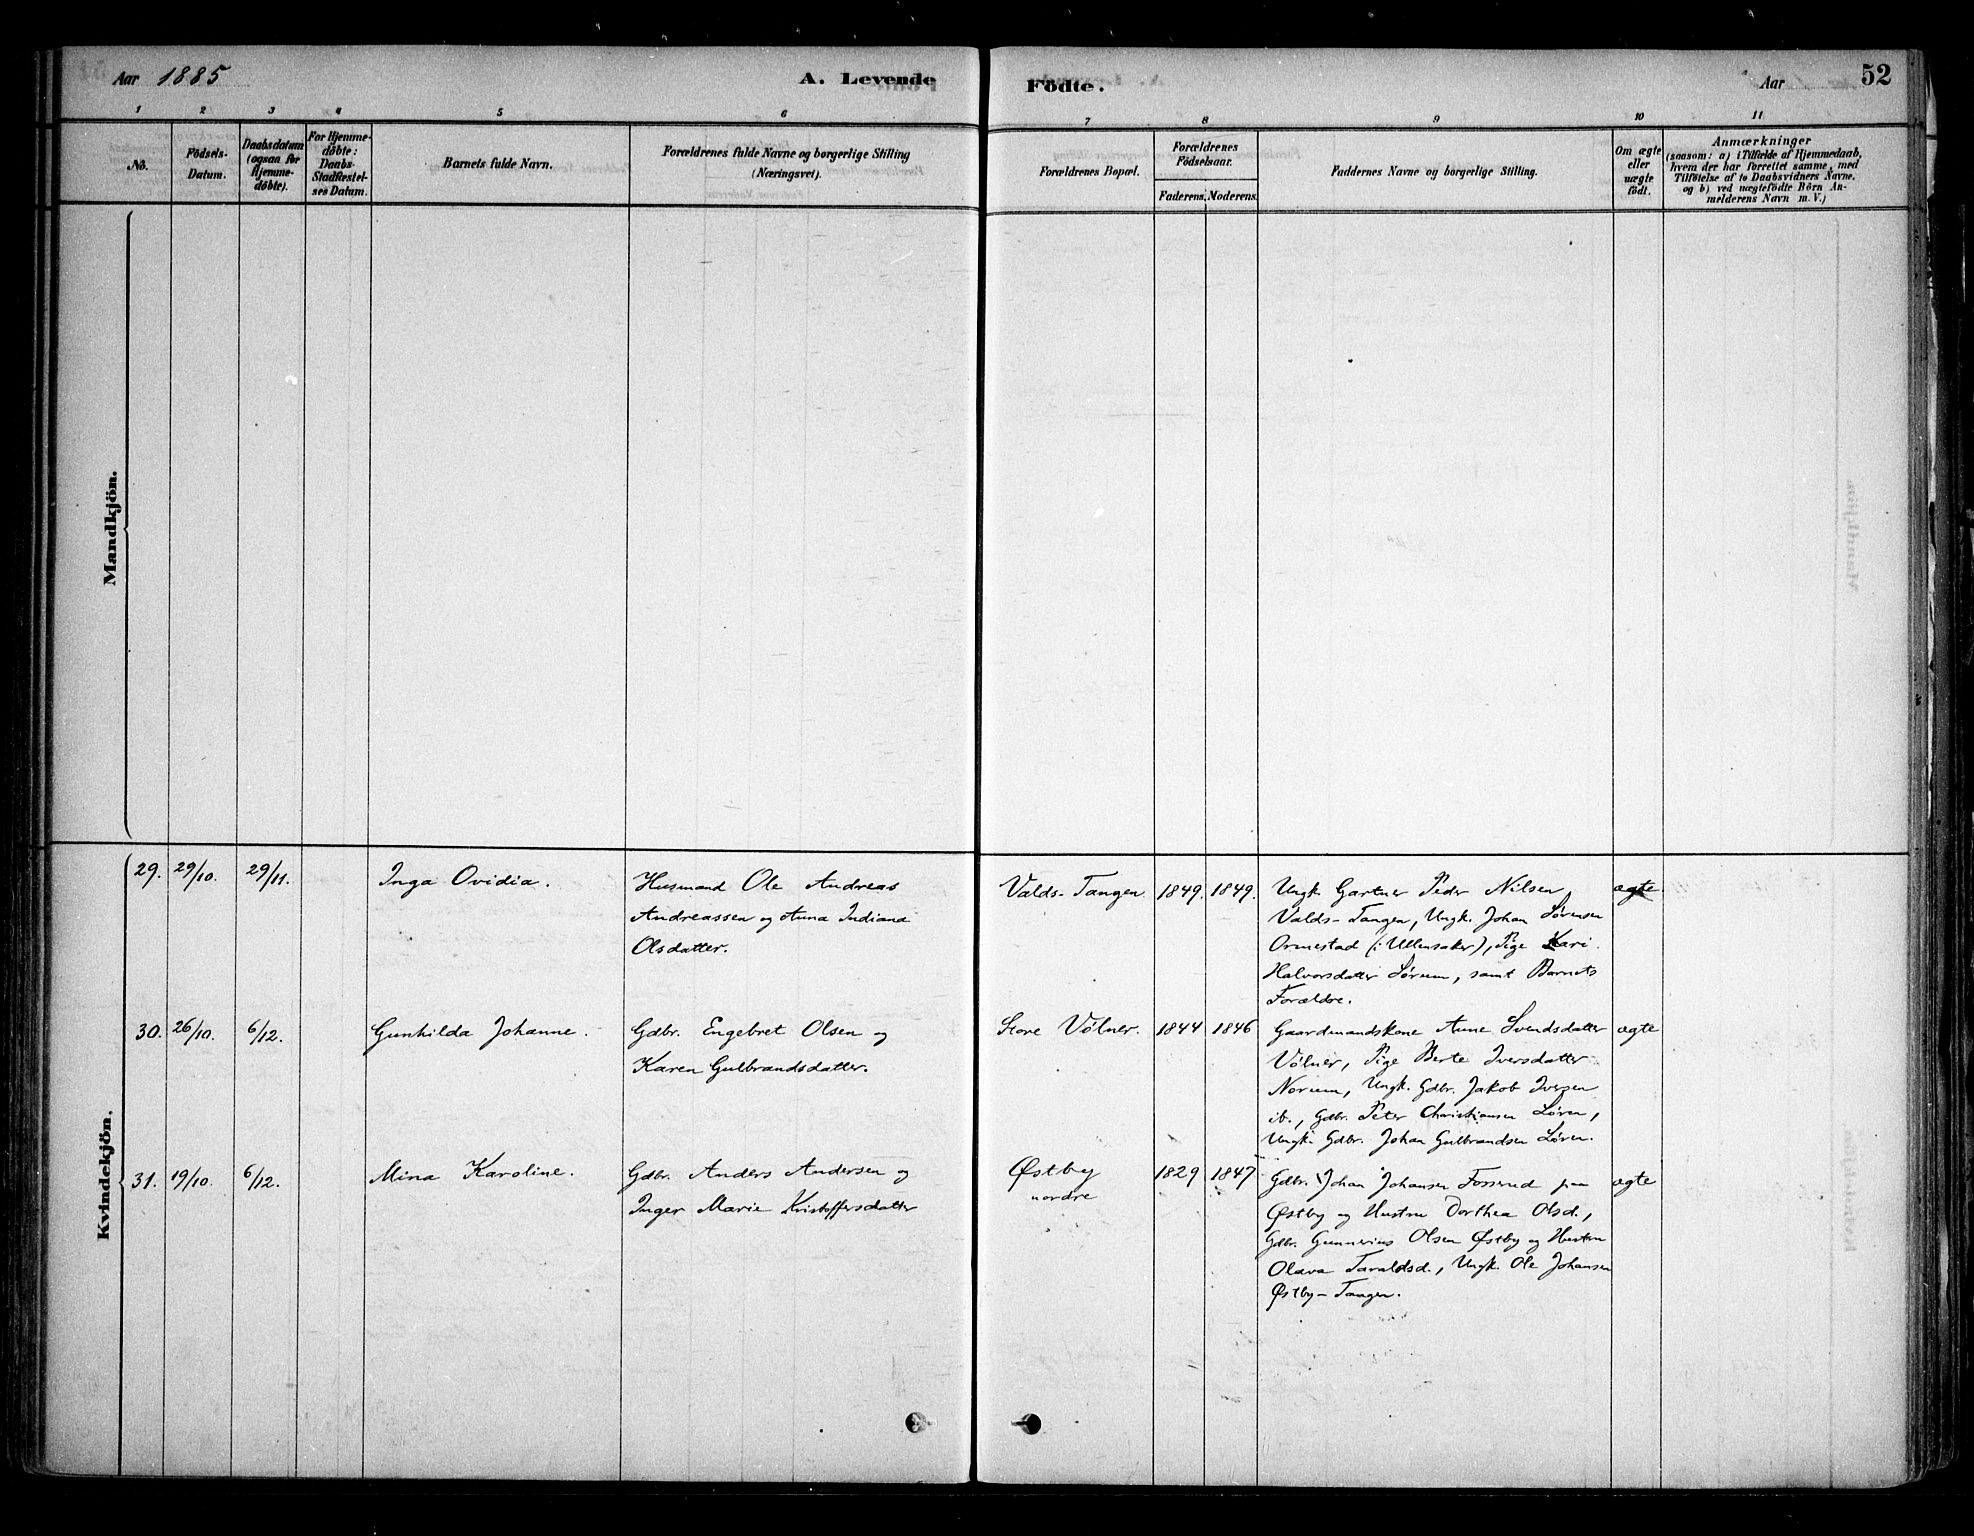 Aar 1885
A. Levende
Födte.
Aar
52
1 2 3 4 5 6 7 8 9 10 11
No.
Födsels-
Datum.
Daabsdatum
(ogsaa for
Hjemme-
döbte).
For Hjemme-
döbte:
Daabs-
Stadfæstel-
ses Datum.
Barnets fulde Navn.
Forældrenes fulde Navne og borgerlige Stilling
(Næringsvei).
Forældrenes Bopæl.
Forældrenes
Födselsaar.
Faderens. Moderens.
Faddernes Navne og borgerlige Stilling.
Om ægte
eller
uægte
födt.
Anmærkninger
(saasom: a) i Tilfælde af Hjemmedaab,
hvem der har forrettet samme, med
Tilföielse af to Daabsvidners Navne,
og b) ved uægtefödte Börn An-
melderens Navn m. V.)
Mandkjön.
Kvindekjön.
29. 29/10. 29/11.
Inga Ovidia.
Husmand Ole Andreas
Andreassen og Anna Indiana
Olsdatter.
Valds-Tangen
1849. 1849.
Ungk. Gartner Peder Nilsen,
Valds-Tangen, Ungk. Johan Sörensen
Ormestad (i Ullensaker), Pige Kari
Halvorsdatter Sørum, samt Barnets
Forældre.
ægte
30. 26/10. 6/12.
Gunhilda Johanne.
Gdbr. Engebret Olsen og
Karen Gulbrandsdatter.
Store Vølner.
1844 1846
Gaardmandskone Anne Svendsdatter
Vølner, Pige Berte Iversdatter
Norum, Ungk. Gdbr. Jakob Iversen
ib., Gdbr. Peter Christiansen Løren,
Ungk. Gdbr. Johan Gulbrandsen Løren.
ægte
31. 19/10. 6/12.
Mina Karoline.
Gdbr. Anders Andersen og
Inger Marie Kristoffersdatter
Østby
nordre
1829 1847
Gdbr. Johan Johansen Fosserud paa
Østby og Hustru Dorthea Olsd.,
Gdbr. Gunnerius Olsen Østby og Hustru
Olava Taraldsd., Ungk. Ole Johansen
Østby-Tangen.
ægte